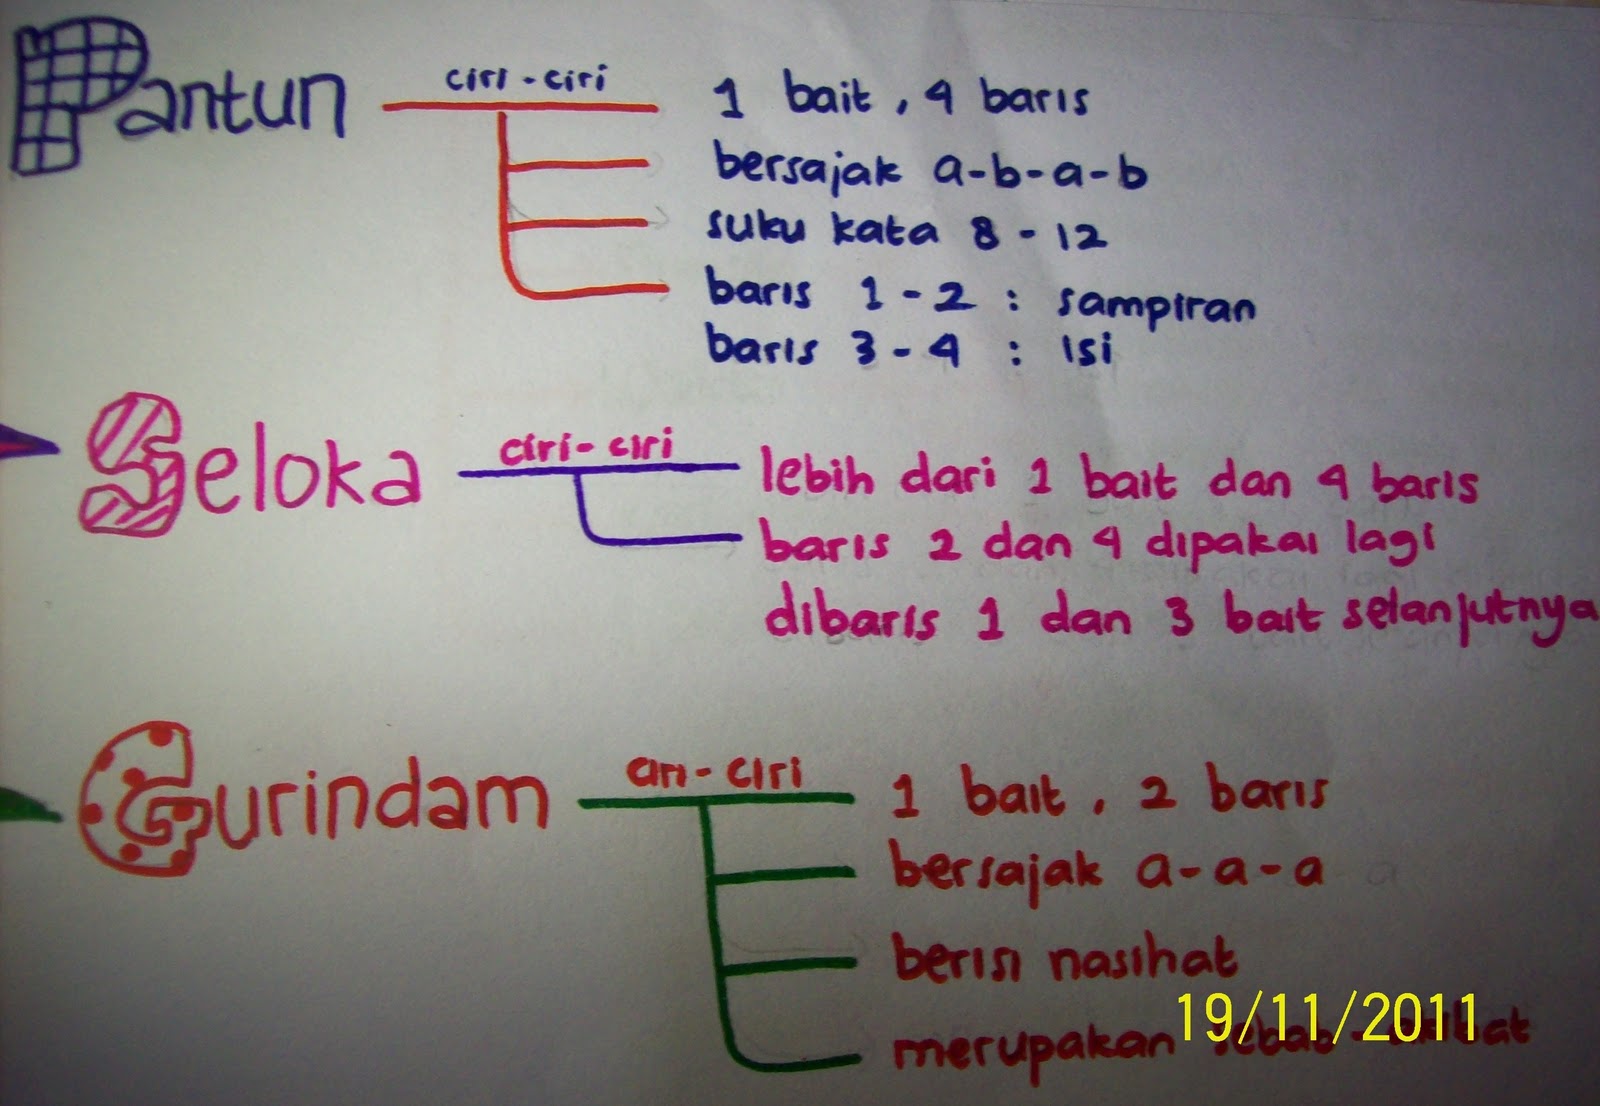 Pantun
ciri-ciri
1 bait, 4 baris
bersajak a-b-a-b
suku kata 8-12
baris 1-2 : sampiran
baris 3-4 : isi
Seloka
ciri-ciri
lebih dari 1 bait dan 4 baris
baris 2 dan 4 dipakai lagi
dibaris 1 dan 3 bait selanjutnya
Gurindam
ciri-ciri
1 bait, 2 baris
bersajak a-a-a
berisi nasihat
merupakan sebab-akibat
19/11/2011